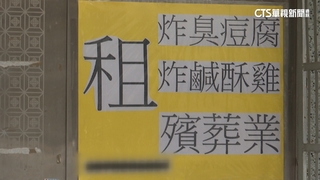 CTS華視新聞
租
炸臭痘腐
炸鹹酥雞
殯葬業